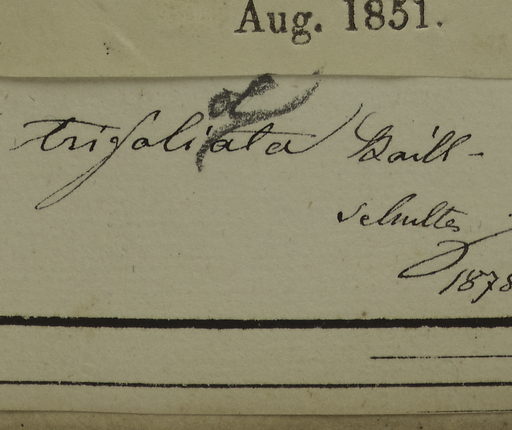 Aug. 1851.
trifoliata Baill-
Schultes
1878